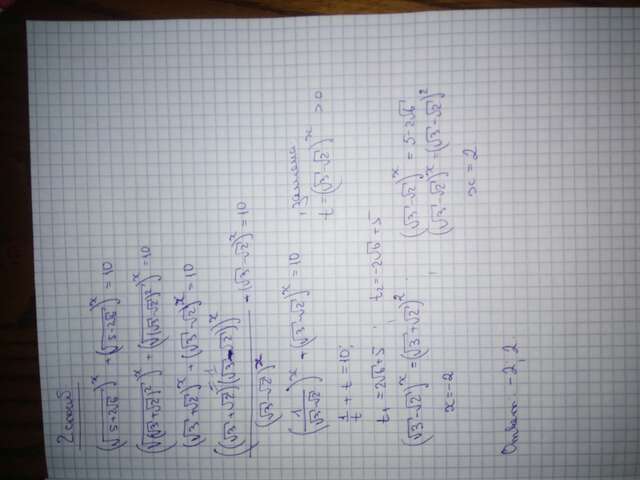 2 способ
(√5+2√6)^x + (√5-2√6)^x = 10
(√(√3+√2)²)^x + (√(√3-√2)²)^x = 10
(√3+√2)^x + (√3-√2)^x = 10
((√3+√2)(√3-√2))^x / (√3-√2)^x + (√3-√2)^x = 10
(1/(√3-√2))^x + (√3-√2)^x = 10 , замена
t = (√3-√2)^x > 0
1/t + t = 10;
t₁ = 2√6+5 , t₂ = -2√6+5
(√3-√2)^x = (√3+√2)²
x = -2
(√3-√2)^x = 5-2√6
(√3-√2)^x = (√3-√2)²
x = 2
Ответ: -2; 2